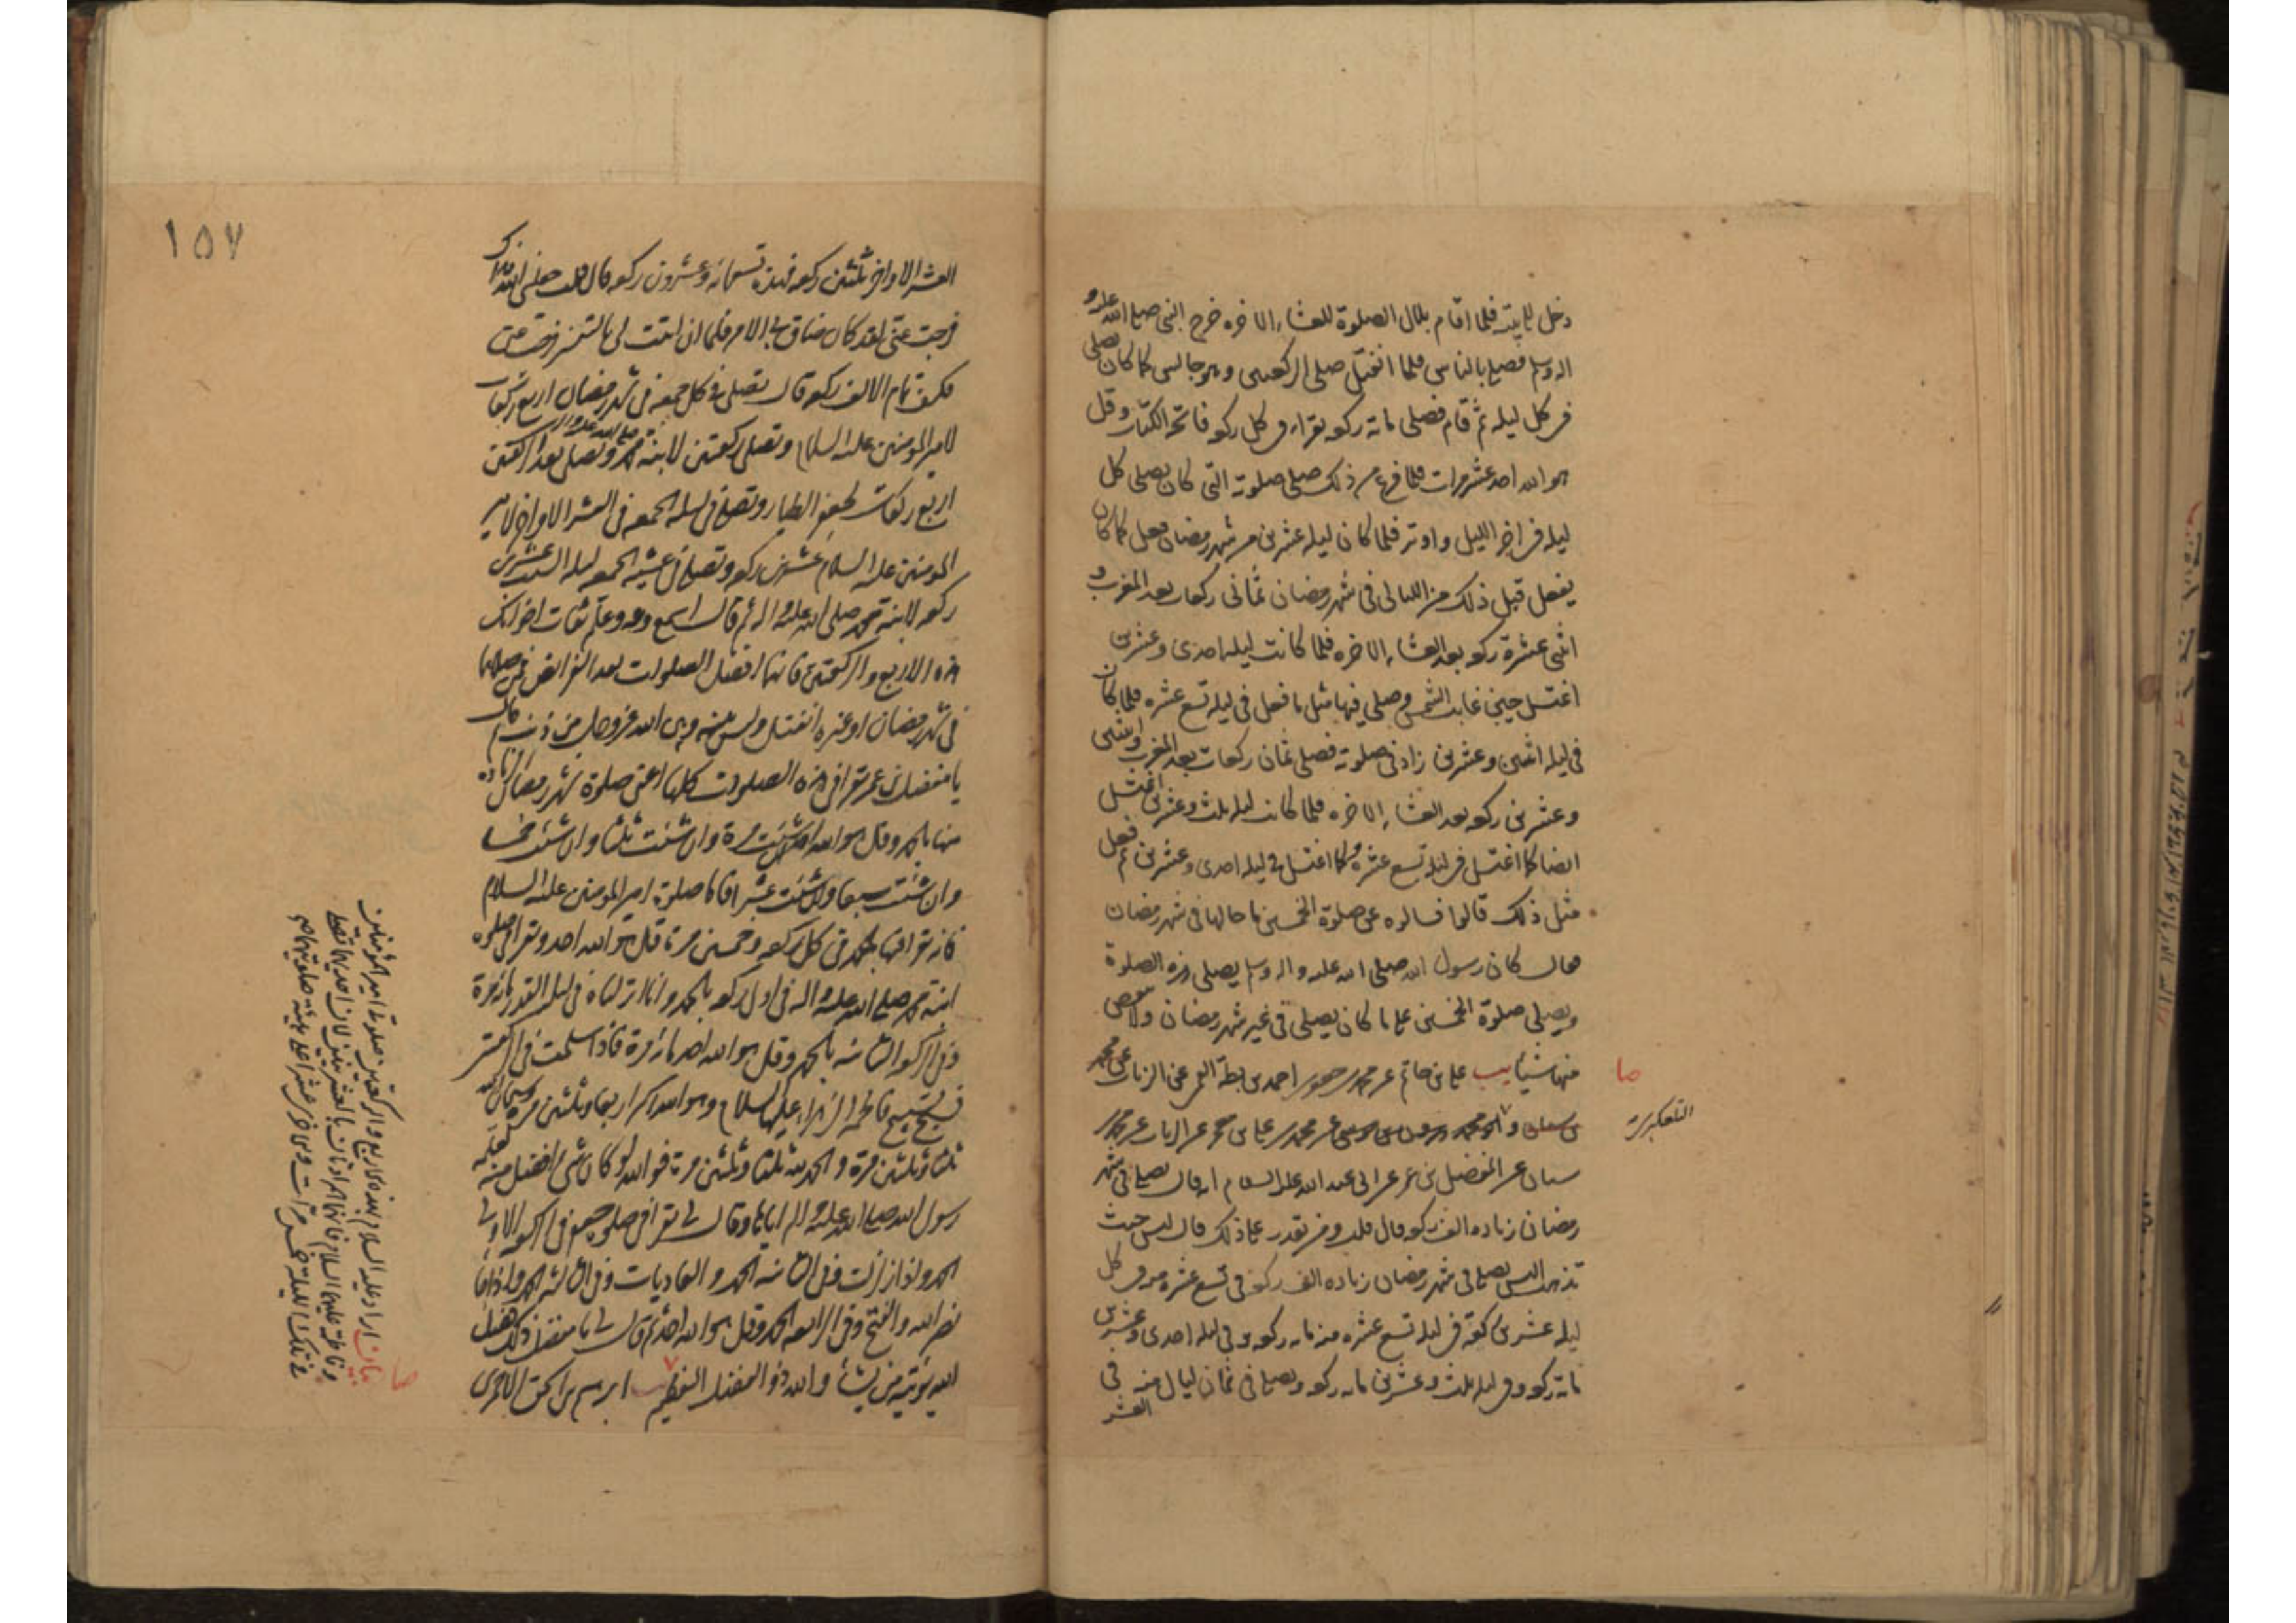 دخل الى بيته فلما اقام بلال الصلوة للعشاء الاخره خرج النبى صلى الله عليه و
اله وسلم فصلى بالناس فلما انفتل صلى الركعتين وهو جالس كما كان يصلى
فى كل ليله ثم قام فصلى مائة ركعه يقراء فى كل ركعه فاتحة الكتاب وقل
هو الله احد عشر مرات فلما فرغ من ذلك صلى صلوته التى كان يصلى كل
ليله فى اخر الليل واوتر فلما كان ليله عشرين من شهر رمضان فعل كما كان
يفعل قبل ذلك من الليالى فى شهر رمضان ثمانى ركعات بعد المغرب و
اثنى عشرة ركعه بعد العشاء الاخره فلما كانت ليله احدى وعشرين
اغتسل حين غابت الشمس وصلى فيها مثل ما فعل فى ليله تسع عشره فلما كان
فى ليله اثنين وعشرين زاد فى صلوته فصلى ثمان ركعات بعد المغرب واثنتى
وعشرين ركعه بعد العشاء الاخره فلما كانت ليله ثلث وعشرين اغتسل
ايضا كما اغتسل فى ليله تسع عشره وكما اغتسل فى ليله احدى وعشرين ثم فعل
مثل ذلك قالوا فسالوه عن صلوة الخمسين ما حالها فى شهر رمضان
فقال كان رسول الله صلى الله عليه واله وسلم يصلى هذه الصلوة
ويصلى صلوة الخمسين على ما كان يصلى فى غير شهر رمضان ولا ينقص
منها شيئا يب على بن حاتم عن محمد بن جعفر بن احمد بن بطة القمى عن الزيات عن محمد
صا
بن سنان و ابو محمد هرون بن موسى عن محمد بن على بن معمر عن الزيات عن محمد بن
التلعكبرى
سنان عن المفضل بن عمر عن ابى عبد الله عليه السلام انه قال يصلى فى شهر
رمضان زياده الف ركعه قال قلت ومن يقدر على ذلك قال ليس حيث
تذهب اليس يصلى فى شهر رمضان زياده الف ركعه فى تسع عشره منه فى كل
ليله عشرين ركعة فى ليله تسع عشره منه مائه ركعه وفى ليله احدى وعشرين
مائة ركعه وفى ليله ثلث وعشرين مائه ركعه ويصلى فى ثمان ليال منه فى
العشر
١٥٧
العشر الاواخر ثلثين ركعه فهذه تسعمائه وعشرون ركعه قال قلت جعلنى الله فداك
فرجت عنى لقد كان ضاق بى الامر فلما ان اتيت لى بالتفسير فرجت عنى
فكيف تمام الالف ركعه قال تصلى فى كل جمعه فى شهر رمضان اربع ركعات
لامير المومنين عليه السلام وتصلى ركعتين لابنة محمد صلى الله عليه واله وتصلى بعد الركعتين
اربع ركعات لجعفر الطيار وتصلى فى ليله الجمعه فى العشر الاواخر لامير
المومنين عليه السلام عشرين ركعه وتصلى فى عشيه الجمعه ليله السبت عشرين
ركعه لابنة محمد صلى الله عليه واله ثم قال اسمع وعه وعلم ثقات اخوانك
هذه الاربع والركعتين فانهما افضل الصلوات بعد الفرايض فمن صلاهما
فى شهر رمضان او غيره انفتل وليس بينه وبين الله عز وجل من ذنب ثم قال
يا مفضل بن عمر تقرا فى هذه الصلوات كلها اعنى صلوة شهر رمضان الزياده
منها بالحمد وقل هو الله احد ان شئت مرة وان شئت ثلثا وان شئت خمسا
وان شئت سبعا وان شئت عشرا فاما صلوة امير المومنين عليه السلام
فانه تقرا فيها بالحمد فى كل ركعه وخمسين مرة قل هو الله احد وتقرا فى صلوة
ابنة محمد صلى الله عليه واله فى اول ركعه بالحمد وانا انزلناه فى ليله القدر مائه مرة
وفى الركعه الثانيه بالحمد وقل هو الله احد مائه مرة فاذا سلمت فى الركعتين
فسبح تسبيح فاطمه الزهراء عليها السلام وهو الله اكبر اربعا وثلثين مرة وسبحان الله
ثلثا وثلثين مرة والحمد لله ثلثا وثلثين مرة فوالله لو كان شئ افضل منه لعلمه
رسول الله صلى الله عليه واله اياها وقال لى تقرا فى صلوة جعفر فى الركعه الاولى
الحمد واذا زلزلت وفى الثانيه الحمد والعاديات وفى الثالثه الحمد واذا جاء
نصر الله والفتح وفى الرابعه الحمد وقل هو الله احد ثم قال لى يا مفضل ذلك فضل
الله يؤتيه من يشاء والله ذو الفضل العظيم يب ابرهيم بن اسحق الاحمرى
صا
بيان اراد عليه السلام بهذه الاربع والركعتين صلوة امير المؤمنين
وفاطمة عليهما السلام